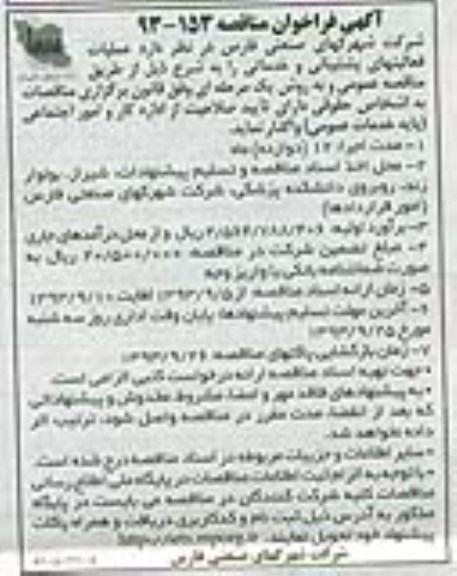 آگهی فراخوان مناقصه ۱۵۳-۹۳
شرکت شهرکهای صنعتی فارس در نظر دارد عملیات
فعالیتهای پشتیبانی و خدماتی را به شرح ذیل از طریق
مناقصه عمومی و به روش یک مرحله ای وفق قانون برگزاری مناقصات
به اشخاص حقوقی دارای تأیید صلاحیت از اداره کار و امور اجتماعی
(پایه خدمات عمومی) واگذار نماید.
۱- مدت اجرا: ۱۲ (دوازده) ماه
۲- محل اخذ اسناد مناقصه و تسلیم پیشنهادات: شیراز، بولوار
زند، روبروی دانشکده پزشکی، شرکت شهرکهای صنعتی فارس
(امور قراردادها)
۳- برآورد اولیه: ریال و از محل درآمدهای جاری
۴- مبلغ تضمین شرکت در مناقصه: ۲۰/۵۰۰/۰۰۰ ریال به
صورت ضمانتنامه بانکی یا واریز وجه
۵- زمان ارائه اسناد مناقصه: از ۱۳۹۳/۹/۵ لغایت ۱۳۹۳/۹/۱۰
۶- آخرین مهلت تسلیم پیشنهادها: پایان وقت اداری روز سه شنبه
مورخ ۱۳۹۳/۹/۲۵
۷- زمان بازگشایی پاکتهای مناقصه: ۱۳۹۳/۹/۲۶
• جهت تهیه اسناد مناقصه ارائه درخواست کتبی الزامی است.
• به پیشنهادهای فاقد مهر و امضا، مشروط، مخدوش و پیشنهاداتی
که بعد از انقضا مدت مقرر در مناقصه واصل شود، ترتیب اثر
داده نخواهد شد.
• سایر اطلاعات و جزییات مربوطه در اسناد مناقصه درج شده است.
• با توجه به الزام ثبت اطلاعات مناقصات در پایگاه ملی اطلاع رسانی
مناقصات کلیه شرکت کنندگان در مناقصه می بایست در پایگاه
مذکور به آدرس ذیل ثبت نام و کد کاربری دریافت و همراه پاکات
پیشنهاد خود تحویل نمایند. http://iets.mporg.ir
شرکت شهرکهای صنعتی فارس